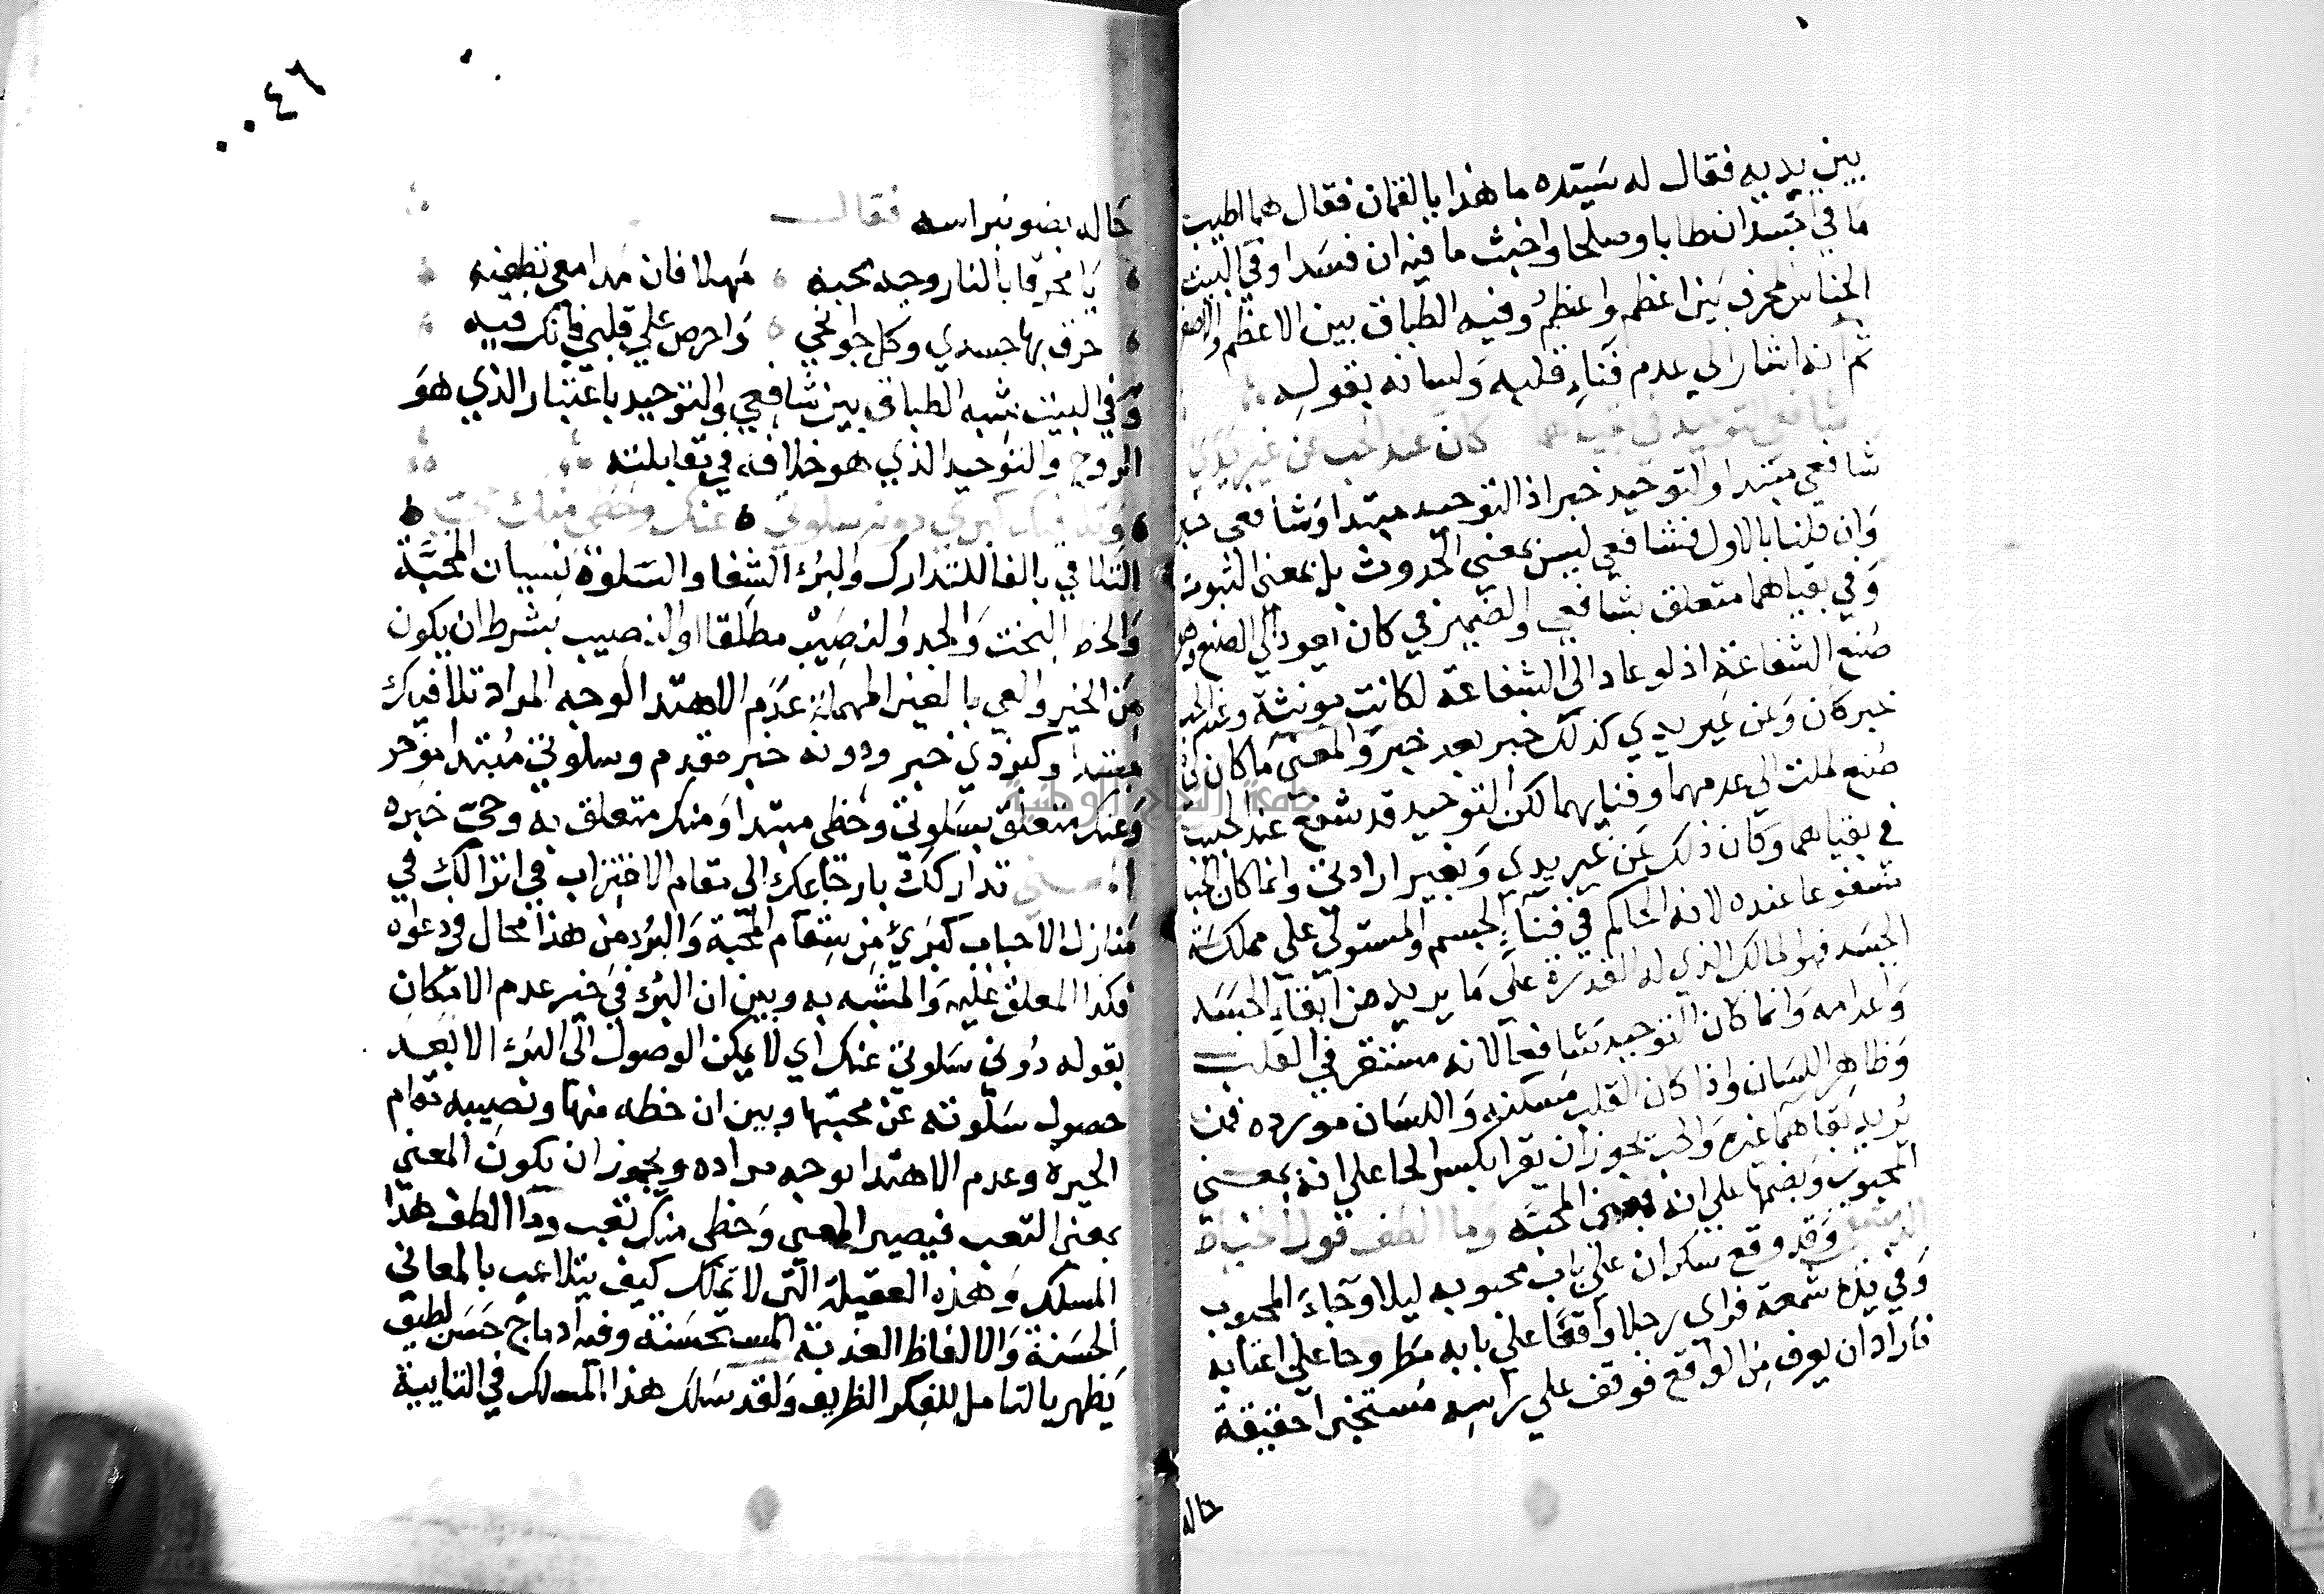 بين يديه فقال له سيده ما هذا يا لقمان فقال هما اطيب
ما في الجسد ان طابا وصلحا واخبث ما فيه ان فسدا وفي البيت
الجناس المحرف بين اعظم واعظم وفيه الطباق بين الاعظم والاصغر
ثم انه اشار الي عدم فناء قلبه ولسانه بقوله
شافعي التوحيد في بقياهما كان عند الحب عن غير يدي
شافعي مبتدا والتوحيد خبر اذ التوحيد مبتدا وشافعي خبر
وان قلنا بالاول فشافعي ليس بمعني الحدوث بل بمعني الثبوت
وفي بقياهما متعلق بشافعي والضمير في كان يعود الي الصنع وهو
صنع الشفاعة اذ لو عاد الي الشفاعة لكانت مونثة وعند الحب
خبر كان وعن غير يدي كذلك خبر بعد خبر والمعني ما كان لي
صنع لملت الي عدمهما وفنايهما لكن التوحيد قد شفع عند الحبيب
في بقياهما وكان ذلك عن غير يدي وبغير ارادتي وانما كان الحب
شفوعا عنده لانه الحاكم في فناء الجسم والمستولي علي مملكة
الجسد فهو المالك الذي له القدرة علي ما يريد من ابقاء الجسد
واعدامه وانما كان التوحيد شافعا لانه مستقر في القلب
وظاهر اللسان واذا كان القلب مسكنه واللسان مورده فمن
يريد بقاهما غيره والحب يجوز ان يقرا بكسر الحا علي انه بمعني
المحبوب وبضمها علي انه بمعني المحبة وما الطف قول
وقد وقع سكران علي باب محبوبه ليلا وجاء المحبوب
وفي يده شمعة فراي رجلا واقعا علي بابه مطروحا علي اعتابه
فاراد ان يعرف من الواقع فوقف علي راسه مستخبرا حقيقة
حاله
٠٠٤٦
حاله بضو نبراسه فقال
يا محرقا بالنار وجه محبه مهلا فان مدامعي تطفيه
حرق بها جسدي وكل جوانحي واحرص علي قلبي فانك فيه
وفي البيت شبه الطباق بين شافعي والتوحيد باعتبار الذي هو
الزوج والتوحيد الذي هو خلافه في مقابلته
دونه سلوتي عنك وحظي منك عي
التلافي بالفا التدارك والبرء الشفا والسلوة نسيان المحبة
والحظ البخت والجد والنصيب مطلقا او النصيب بشرط ان يكون
من الخير والعي بالعين المهملة عدم الاهتدا لوجه المراد تلافيك
مبتدا وكبرءي خبر ودونه خبر مقدم وسلوتي مبتدا موخر
وعنك متعلق بسلوتي وحظي مبتدا ومنك متعلق به وعي خبره
المعني تداركك بارجاعك الي مقام الاقتراب في انزالك في
منازل الاحباب كبرءي من سقام المحبة والبرء من هذا محال في دعواه
فكذا المعلق عليه والمشبه به وبين ان البرء في خبر عدم الامكان
بقوله دوني سلوتي عنك اي لا يمكن الوصول الي البرء الا بعد
حصول سلوته عن محبتها وبين ان حظه منها ونصيبه دوام
الحيرة وعدم الاهتدا لوجه مراده ويجوز ان يكون المعني
بمعني التعب فيصير المعني وحظي منك تعب وما الطف هذا
المسلك وهذه العقيلة التي لا تملك كيف يتلاعب بالمعاني
الحسنة والالفاظ العذبة المستحسنة وفيه ادماج حسن لطيف
يظهر بالتامل للفكر الظريف ولقد سلك هذا المسلك في التايية